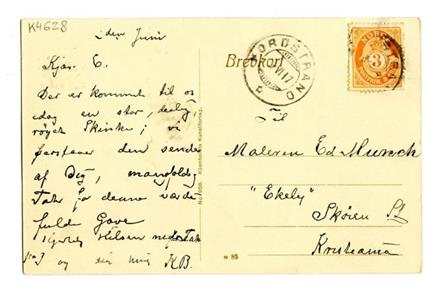 K4628
2den Juni
Kjære E.
Der er kommet til os
idag en stor, deilig
røget Skinke; vi
forstaaer den sendes
af Dig, mangfoldig
Tak for denne værdi-
fulde Gave
Hilsen
og din
Brevkort
NORDSTRAND
VI 17
3
Til
Maleren Ed Munch
"Ekely"
Skøien St
Kristiania
N 85